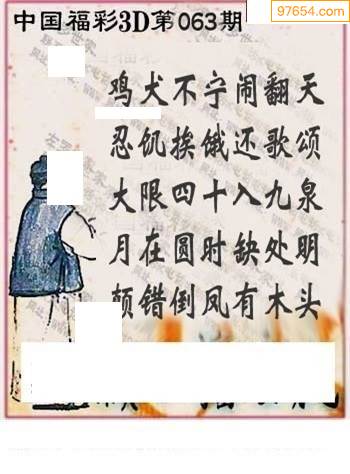 97654.com
中国福彩3D第063期
鸡犬不宁闹翻天
忍饥挨饿还歌颂
大限四十入九泉
月在圆时缺处明
颠错倒凤有木头